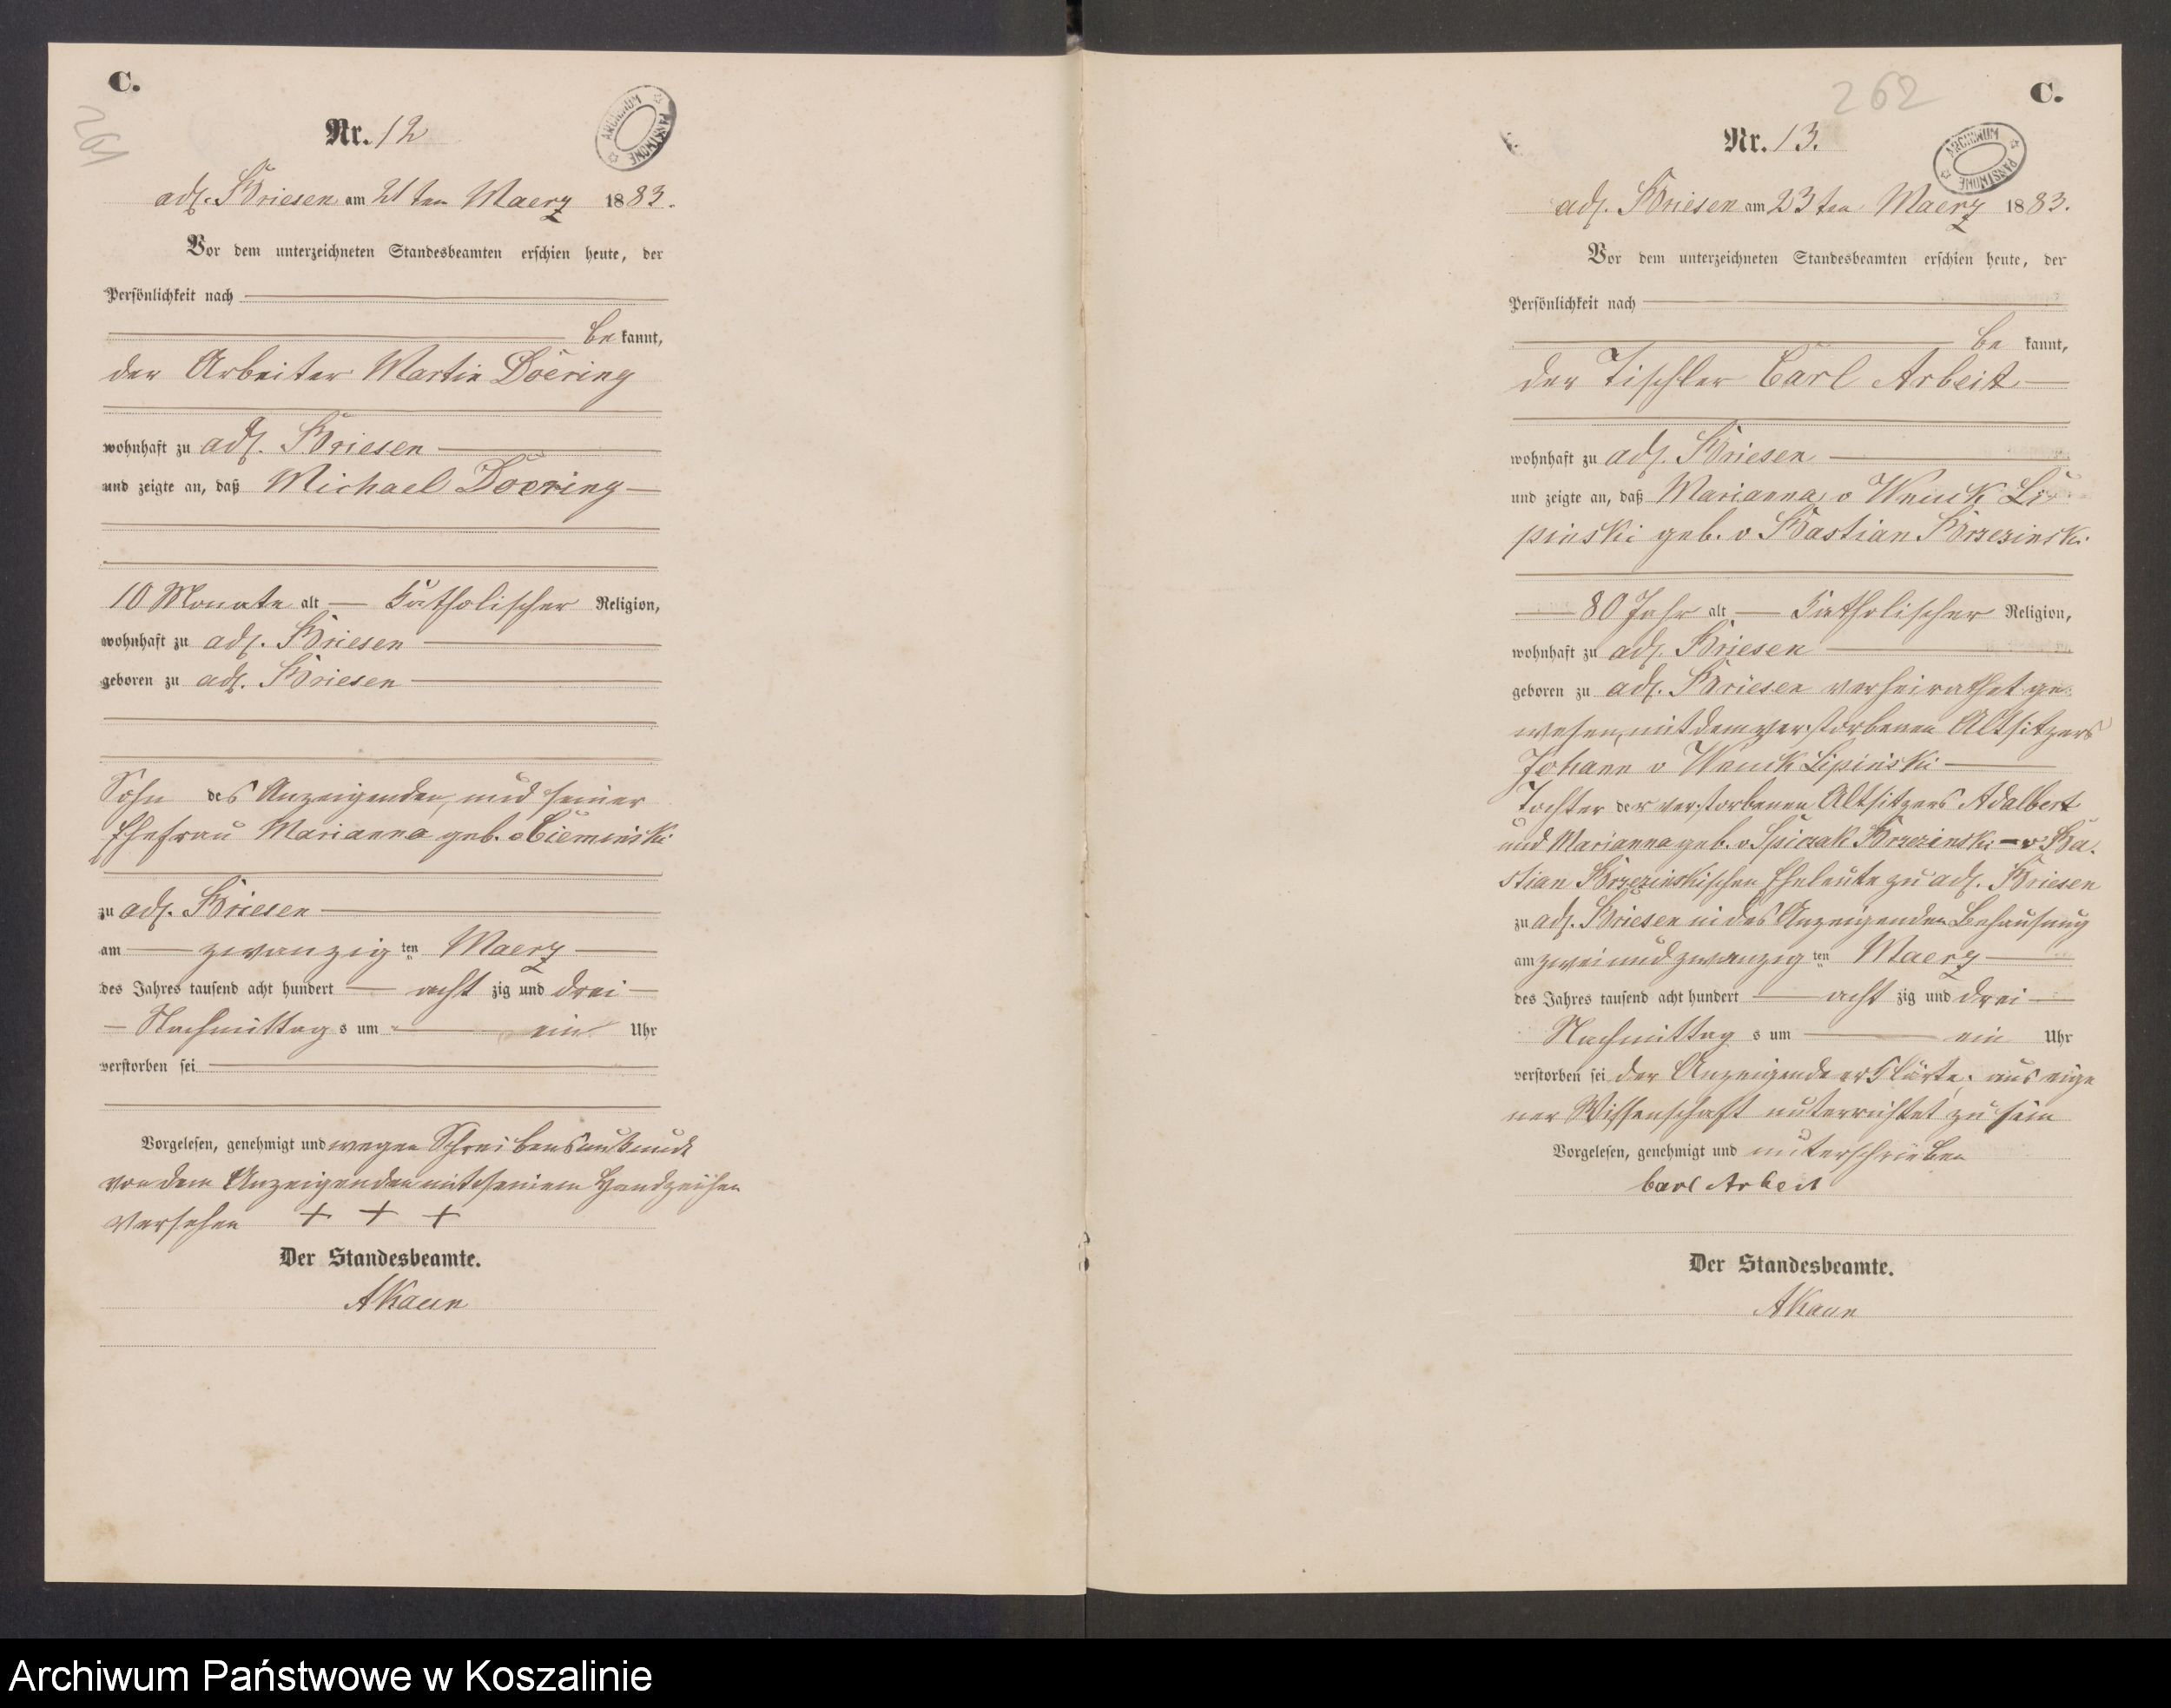 C.
261
Nr. 12
ARCHIWUM PAŃSTWOWE
adl. Briesen am 21ten Maerz 1883.
Vor dem unterzeichneten Standesbeamten erschien heute, der
Persönlichkeit nach
bekannt,
der Arbeiter Martin Döering
wohnhaft zu adl. Briesen
und zeigte an, daß Michael Doering
10 Monate alt katholischer Religion,
wohnhaft zu adl. Briesen
geboren zu adl. Briesen
Sohn des Anzeigenden, und seiner
Ehefrau Marianna geb. v Cieminski
zu adl. Briesen
am zwanzigten Maerz
des Jahres tausend acht hundert achtzig und drei
Nachmittags um ein Uhr
verstorben sei
Vorgelesen, genehmigt und wegen Schreibensunkunde
von dem Anzeigenden mit seinem Handzeichen
versehen + + +
Der Standesbeamte.
AKaun
262
C.
Nr. 13.
ARCHIWUM PAŃSTWOWE
adl. Briesen am 23ten Maerz 1883.
Vor dem unterzeichneten Standesbeamten erschien heute, der
Persönlichkeit nach
bekannt,
der Tischler Carl Arbeit
wohnhaft zu adl. Briesen
und zeigte an, daß Marianna v Wnuk Li-
pinski geb. v Bastian Brzezinski
80 Jahr alt katholischer Religion,
wohnhaft zu adl. Briesen
geboren zu adl. Briesen verheirathet ge-
wesen, mit dem verstorbenen Altsitzers
Johann v Wnuk Lipinski
Tochter der verstorbenen Altsitzers Adalbert
und Marianna geb. v Spiczak Brzezinski - v Ba-
stian Brzezinskischen Eheleute zu adl. Briesen
zu adl. Briesen in des Anzeigenden Behausung
am zweiundzwanzigten Maerz
des Jahres tausend acht hundert achtzig und drei
Nachmittags um ein Uhr
verstorben sei der Anzeigende erklärte, aus eige
ner Wissenschaft unterrichtet zu sein
Vorgelesen, genehmigt und unterschrieben
Carl Arbeit
Der Standesbeamte.
AKaun
Archiwum Państwowe w Koszalinie